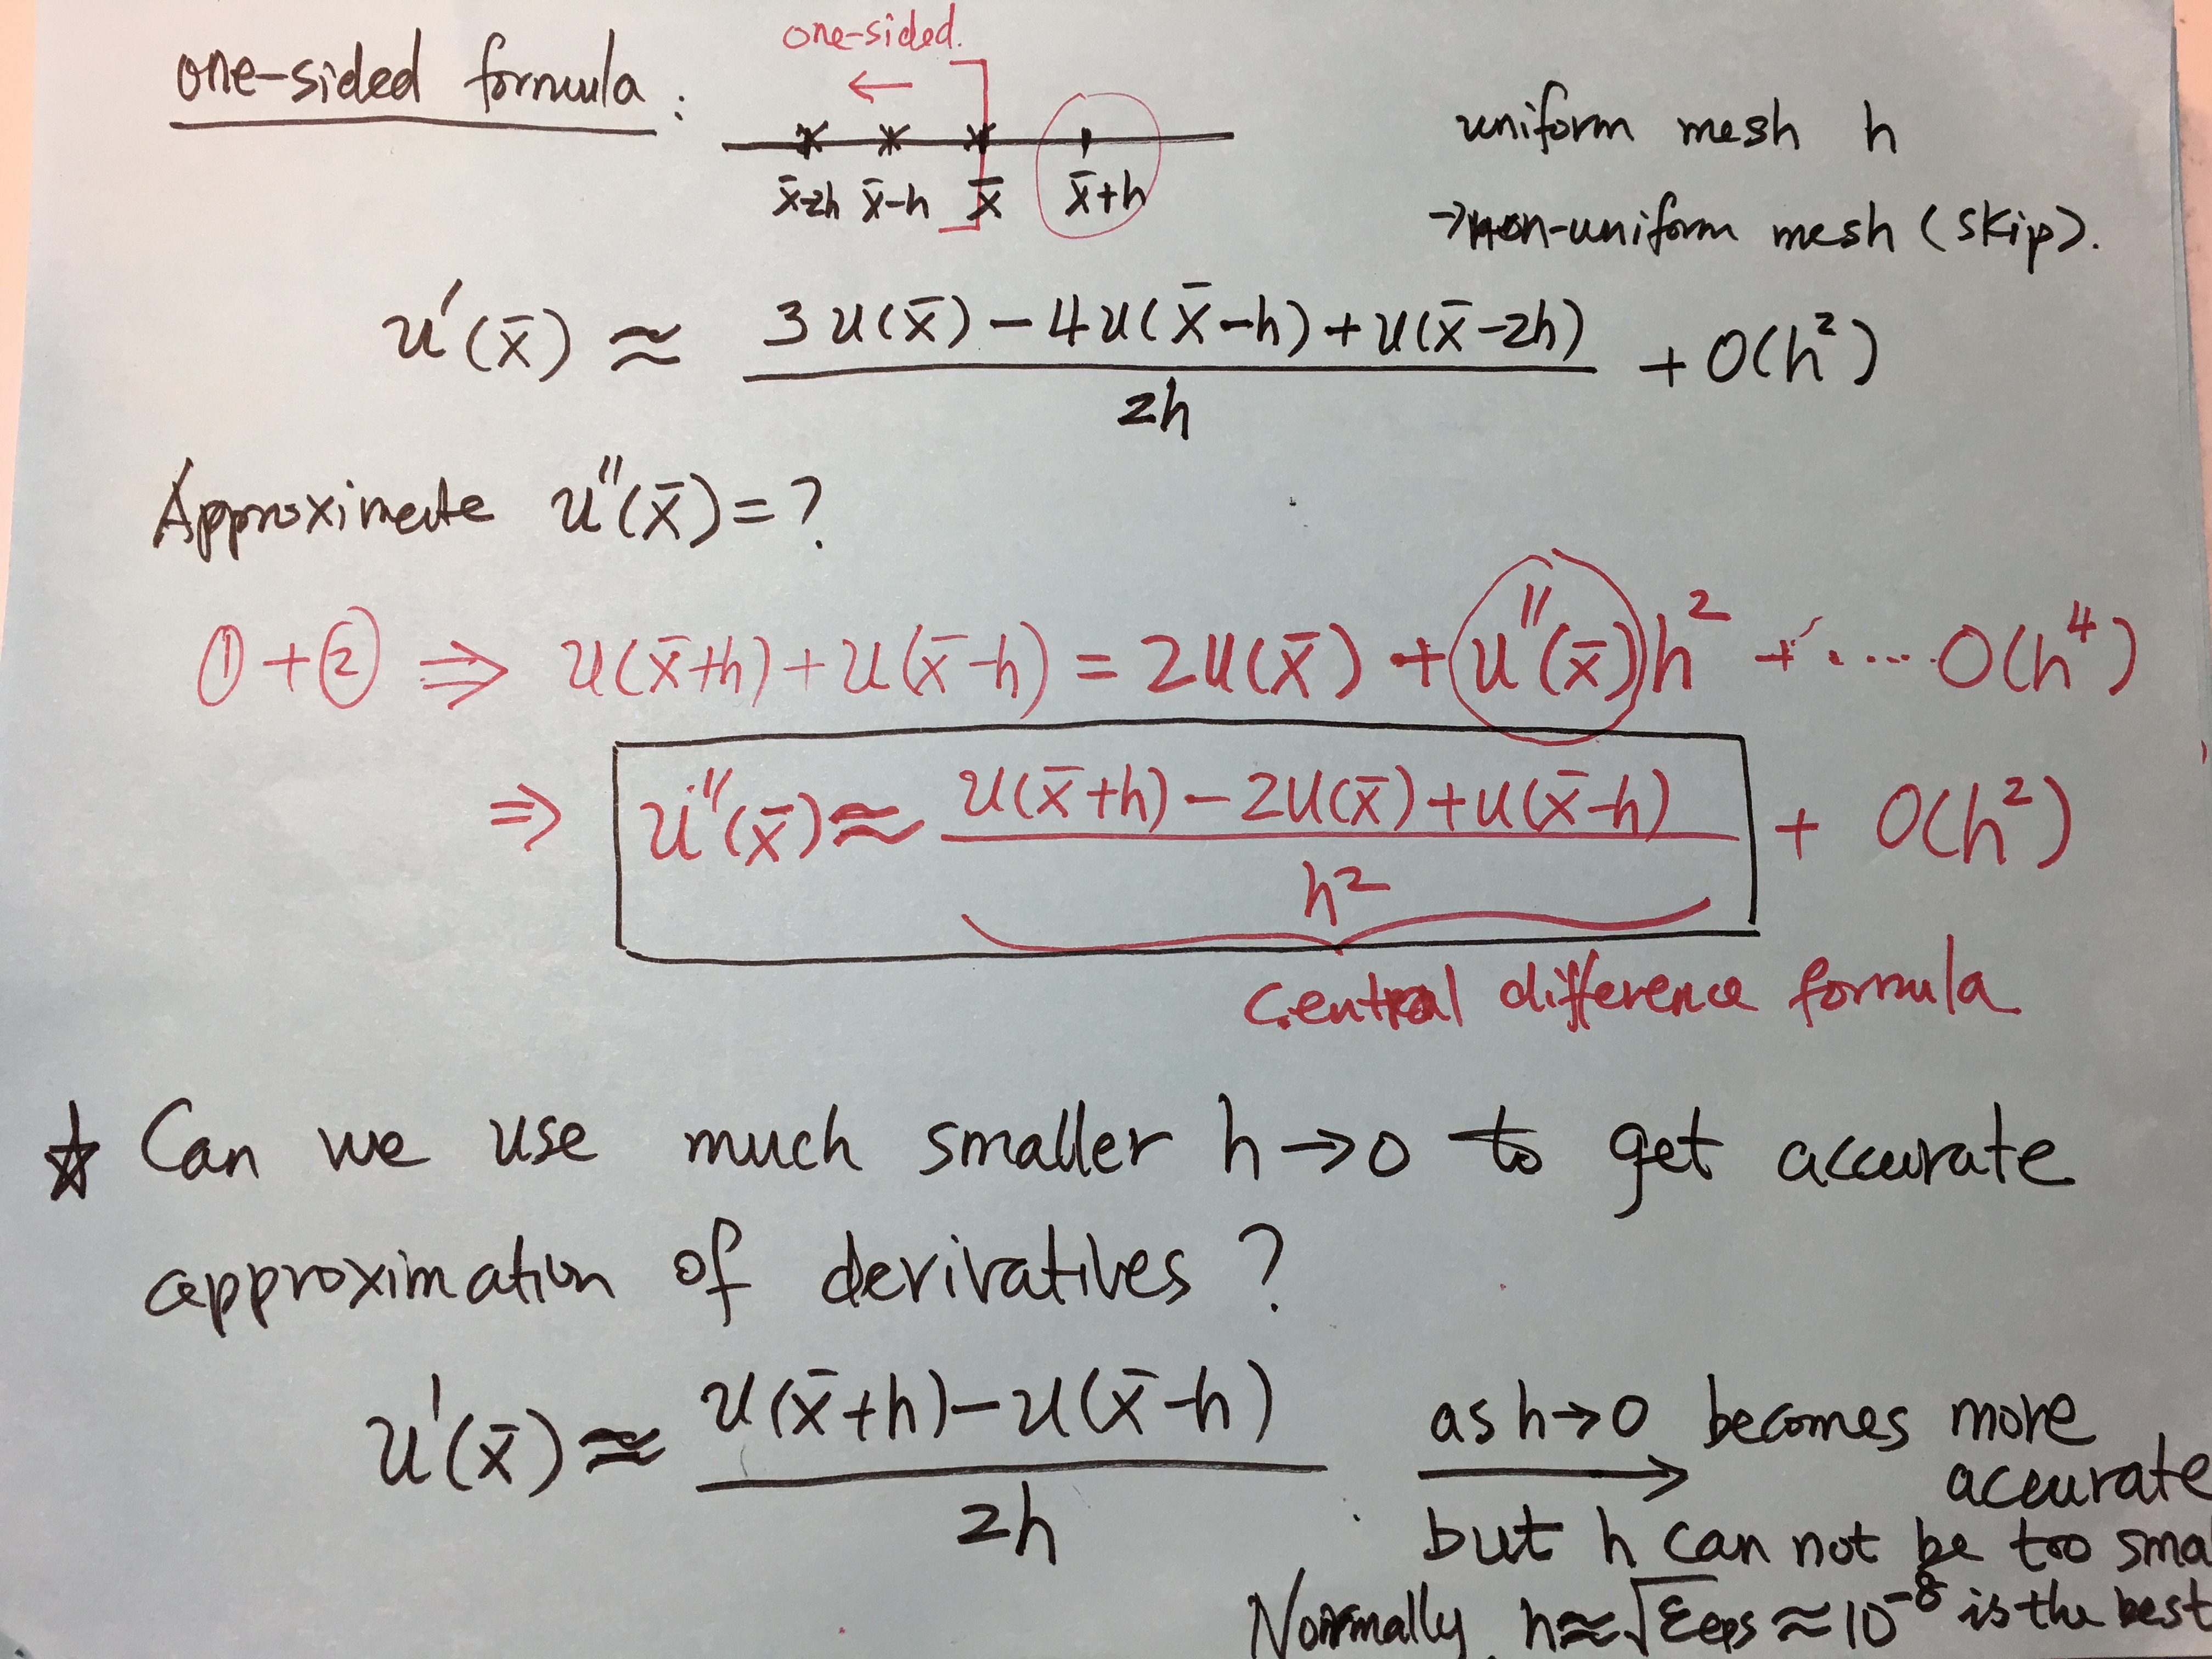 one-sided.
one-sided formula:
←
x̄-2h x̄-h x̄ x̄+h
uniform mesh h
→non-uniform mesh (skip).
u'(x̄) ≈ (3u(x̄) - 4u(x̄-h) + u(x̄-2h)) / 2h + O(h²)
Approximate u''(x̄) = ?
① + ② ⇒ u(x̄+h) + u(x̄-h) = 2u(x̄) + u''(x̄)h² + ···· O(h⁴)
⇒ u''(x̄) ≈ (u(x̄+h) - 2u(x̄) + u(x̄-h)) / h² + O(h²)
Central difference formula
☆ Can we use much smaller h→0 to get accurate
approximation of derivatives ?
u'(x̄) ≈ (u(x̄+h) - u(x̄-h)) / 2h
as h→0 becomes more
accurate
but h can not be too sma
Normally, h ≈ √εeps ≈ 10⁻⁸ is the best